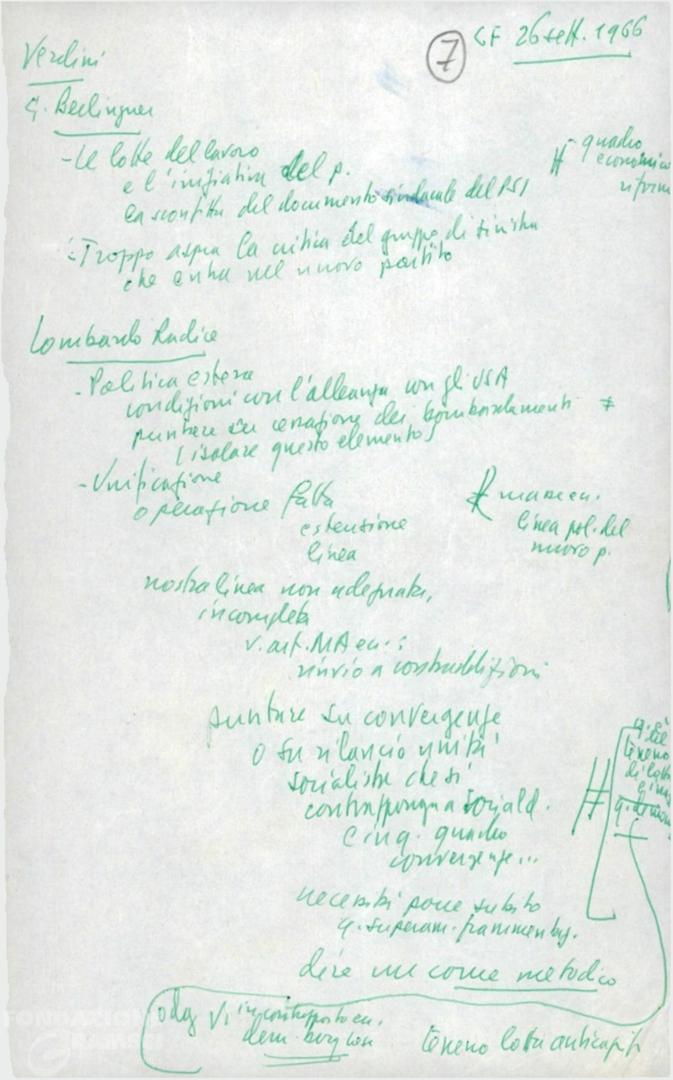 7
CF 26 sett. 1966
Verdini
G. Berlinguer
- Le lotte del lavoro
e l'iniziativa del p.
la sconfitta del documento sindacale del PSI
# - quadro
economico
riform
- Troppo aspra la critica del gruppo di sinistra
che entra nel nuovo partito
Lombardo Radice
- Politica estera
condizioni con l'alleanza con gli USA
puntare su cessazione dei bombardamenti ≠
(isolare questo elemento)
- Unificazione
operazione fatta
estensione
linea
# manca
linea pol. del
nuovo p.
nostra linea non adeguata,
incompleta
v. art. MA
rinvio a contraddizioni
puntare su convergenze
o su rilancio unità
socialista che si
contrapponga a sociald.
quadro
convergenze...
#
terreno
di lotta
necessità porre subito
q. superam. frammentaz.
dire un come metodico
odg VI in contrapposto
dem. borghese
terreno lotta anticapit
FONDAZIONE
GRAMSCI